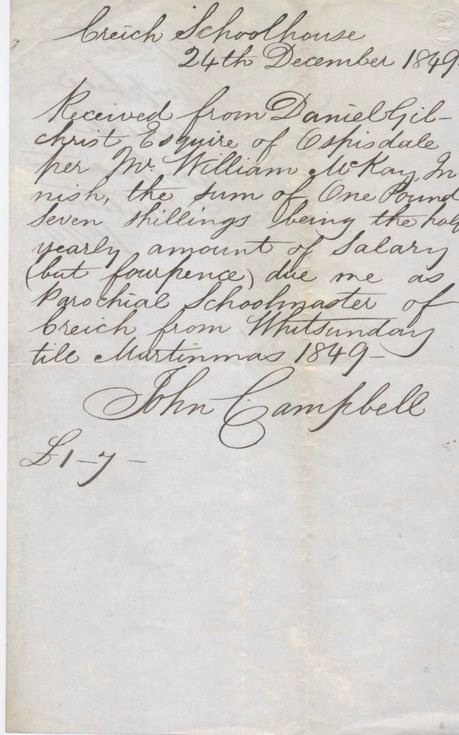 Creich Schoolhouse
24th December 1849.
Received from Daniel Gil-
christ Esquire of Ospisdale
per Mr. William McKay In
nish, the sum of One Pound
Seven shillings being the half
yearly amount of Salary
(but fourpence) due me as
Parochial Schoolmaster of
Creich from Whitsunday
till Martinmas 1849-
John Campbell
£1-7-